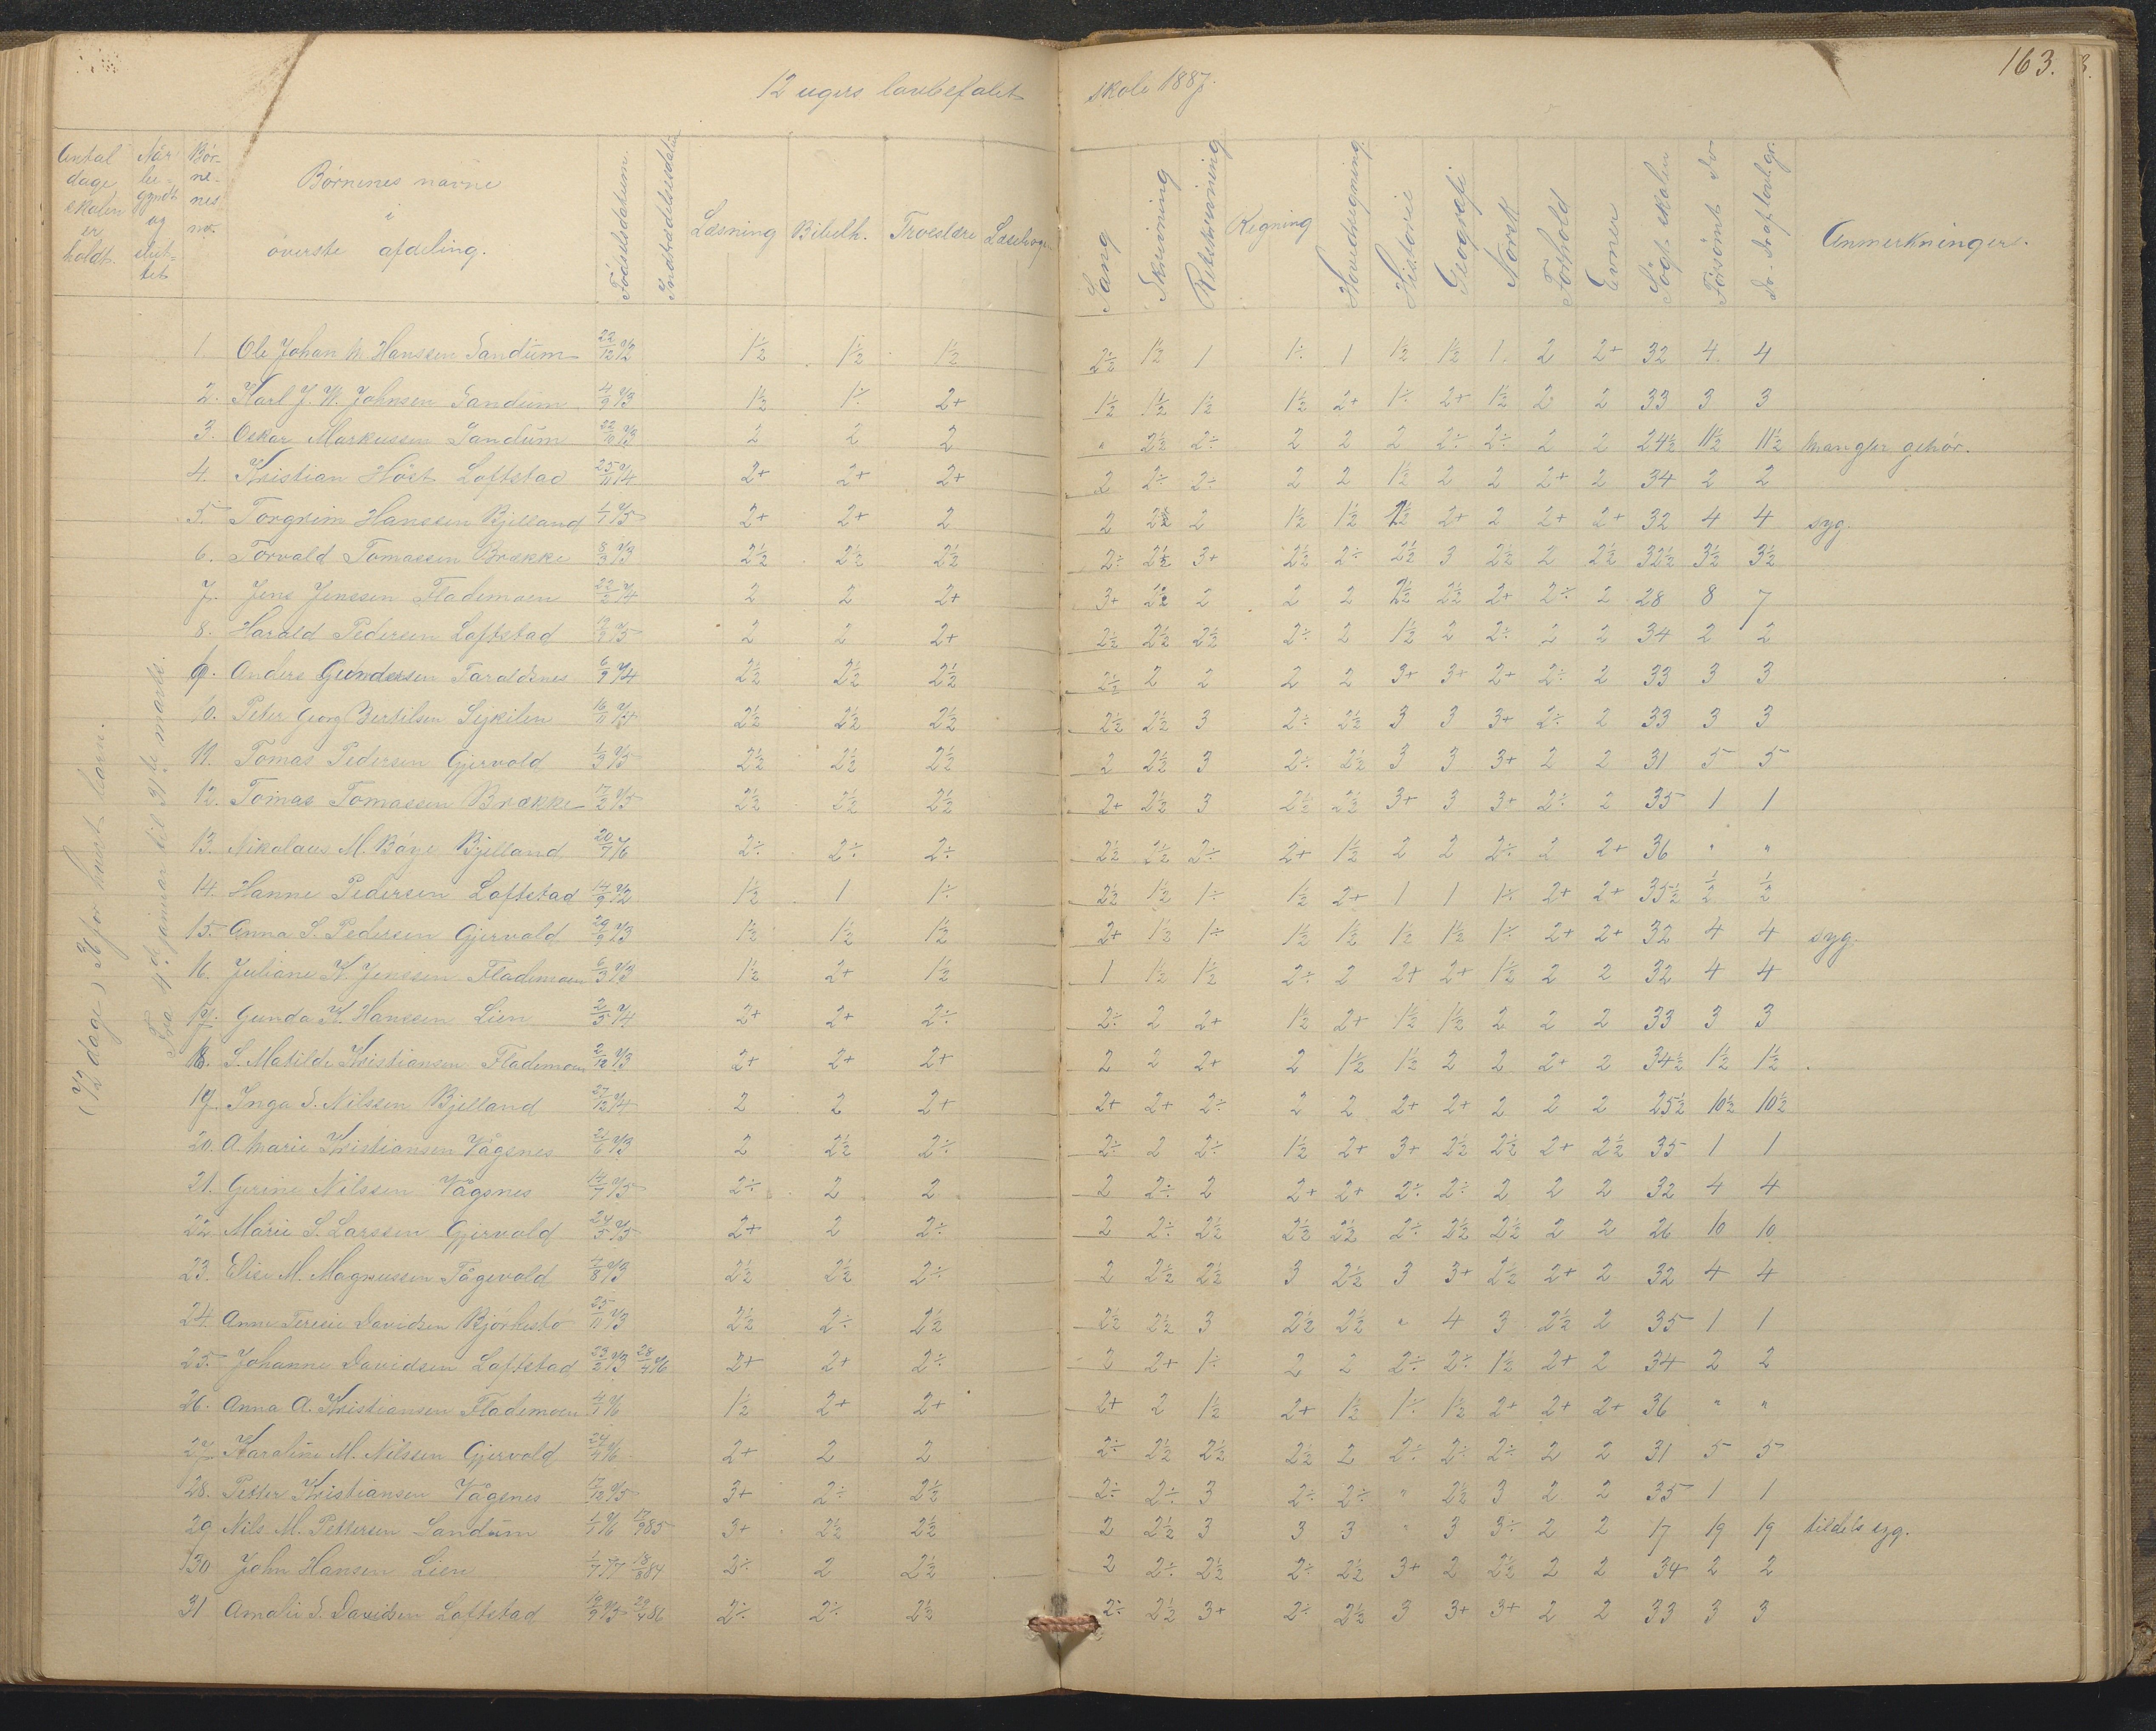 163.
12 ugers lovbefalet skole 1887.
Antal dage skolen er holdt.
Når begyndt og sluttet
Børnenes no.
Børnenes navne i øverste afdeling.
Fødselsdatum.
Indtrædelsesdatum
Læsning Bibelh. Troeslære
Sang Skrivning Retskrivning Regning Hovedregning Historie Geografi Norsk Forhold Evner Søgt skolen Forsømt do
Anmerkninger.
(72 dage) 36 for hvert barn.
Fra 4d. januar til 31te marts.
1. Ole Johan M. Hanssen Sandum 22/12 72 1½ 1½ 1½ 2½ 1½ 1 1÷ 1 1½ 1½ 1 2 2+ 32 4 4
2. Karl J. W. Johnsen Sandum 4/9 73 1½ 1÷ 2+ 1½ 1½ 1½ 1½ 2+ 1÷ 2+ 1½ 2 2 33 3 3
3. Oskar Markussen Sandum 22/10 73 2 2 2 " 2½ 2÷ 2 2 2 2÷ 2÷ 2 2 24½ 11½ 11½ mangler gehør.
4. Kristian Høst Loftstad 25/11 74 2+ 2+ 2+ 2 2÷ 2÷ 2 2 1½ 2 2 2+ 2 34 2 2
5. Torgrim Hanssen Bjelland 1/1 75 2+ 2+ 2 2 2½ 2 1½ 1½ 2½ 2+ 2 2+ 2+ 32 4 4 syg.
6. Torvald Tomassen Brække 8/3 73 2½ 2½ 2½ 2÷ 2½ 3+ 2½ 2÷ 2½ 3 2½ 2 2½ 32½ 3½ 3½
7. Jens Jenssen Flademoen 22/2 74 2 2 2+ 3+ 2½ 2 2 2 2½ 2½ 2+ 2÷ 2 28 8 7
8. Harald Pedersen Loftstad 12/9 75 2 2 2+ 2½ 2½ 2½ 2÷ 2 1½ 2 2÷ 2 2 34 2 2
9. Anders Gundersen Taraldsnes 6/9 74 2½ 2½ 2½ 2½ 2 2 2 2 3+ 3+ 2+ 2÷ 2 33 3 3
10. Peter Georg Bertilsen 16/11 2½ 2½ 2½ 2½ 2½ 3 2÷ 2½ 3 3 3+ 2÷ 2 33 3 3
11. Tomas Pedersen Gjervold 1/3 75 2½ 2½ 2½ 2 2½ 3 2÷ 2½ 3 3 3+ 2 2 31 5 5
12. Tomas Tomassen Brække 17/2 75 2½ 2½ 2½ 2+ 2½ 3 2½ 2½ 3+ 3 3+ 2÷ 2 35 1 1
13. Nikolaus M. Bøye Bjelland 20/7 76 2÷ 2÷ 2÷ 2½ 2½ 2÷ 2+ 1½ 2 2 2÷ 2 2+ 36 " "
14. Hanne Pedersen Loftstad 14/9 72 1½ 1 1÷ 2½ 1½ 1÷ 1½ 2+ 1 1 1÷ 2+ 2+ 35½ ½ ½
15. Anna S. Pedersen Gjervold 29/9 73 1½ 1½ 1½ 2+ 1½ 1÷ 1½ 1½ 1½ 1½ 1÷ 2+ 2+ 32 4 4 syg.
16. Juliane K. Jenssen Flademoen 6/3 73 1½ 2+ 1½ 1 1½ 1½ 2÷ 2 2+ 2+ 1½ 2 2 32 4 4
17. Gunda K. Hanssen Lien 2/5 74 2+ 2+ 2÷ 2÷ 2 2+ 1½ 2+ 1½ 1½ 2 2 2 33 3 3
18. S. Matilde Kristiansen Flademoen 2/12 73 2+ 2+ 2+ 2 2 2+ 2 1½ 1½ 2 2 2+ 2 34½ 1½ 1½
19. Inga S. Nilssen Bjelland 27/12 74 2 2 2+ 2+ 2+ 2÷ 2 2 2+ 2+ 2 2 2 25½ 10½ 10½
20. A. Marie Kristiansen Vågsnes 21/6 73 2 2½ 2÷ 2÷ 2 2÷ 1½ 2+ 3+ 2½ 2½ 2+ 2½ 35 1 1
21. Gerine Nilssen Vågsnes 14/7 75 2÷ 2 2 2 2÷ 2 2+ 2+ 2÷ 2÷ 2 2 2 32 4 4
22. Marie S. Larssen Gjervold 24/5 75 2+ 2 2÷ 2 2÷ 2½ 2½ 2½ 2÷ 2½ 2½ 2 2 26 10 10
23. Elise M. Magnussen Tågevold 4/8 73 2½ 2½ 2÷ 2 2½ 2½ 3 2½ 3 3+ 2½ 2+ 2 32 4 4
24. Anne Teresie Davidsen 25/11 73 2½ 2÷ 2½ 2½ 2½ 3 2½ 2½ " 4 3 2½ 2 35 1 1
25. Johanne Davidsen Loftstad 23/2 73 28/4 76 2+ 2+ 2÷ 2 2+ 1÷ 2 2 2÷ 2÷ 1½ 2+ 2 34 2 2
26. Anna A. Kristiansen Flademoen 4/1 76 1½ 2+ 2+ 2+ 2 1½ 2+ 1½ 1÷ 1½ 2+ 2+ 2+ 36 " "
27. Karoline M. Nilssen Gjervold 24/4 76 2+ 2 2 2÷ 2½ 2½ 2½ 2 2÷ 2÷ 2÷ 2 2 31 5 5
28. Petter Kristiansen Vågsnes 17/12 75 3+ 2÷ 2½ 2÷ 2÷ 3 2÷ 2÷ " 2½ 3 2 2 35 1 1
29 Nils M. Pettersen Sandum 1/1 76 17/9 85 3+ 2½ 2½ 2 2½ 3 3 3 " 3 3÷ 2 2 17 19 19 tildels syg.
30 John Hansen Lien 1/7 77 18/8 84 2÷ 2 2½ 2 2÷ 2½ 2÷ 2½ 3+ 2 2½ 2 2 34 2 2
31 Amalie S. Davidsen Loftstad 19/9 75 29/4 86 2÷ 2÷ 2½ 2÷ 2½ 3+ 2÷ 2½ 3 3+ 3+ 2 2 33 3 3